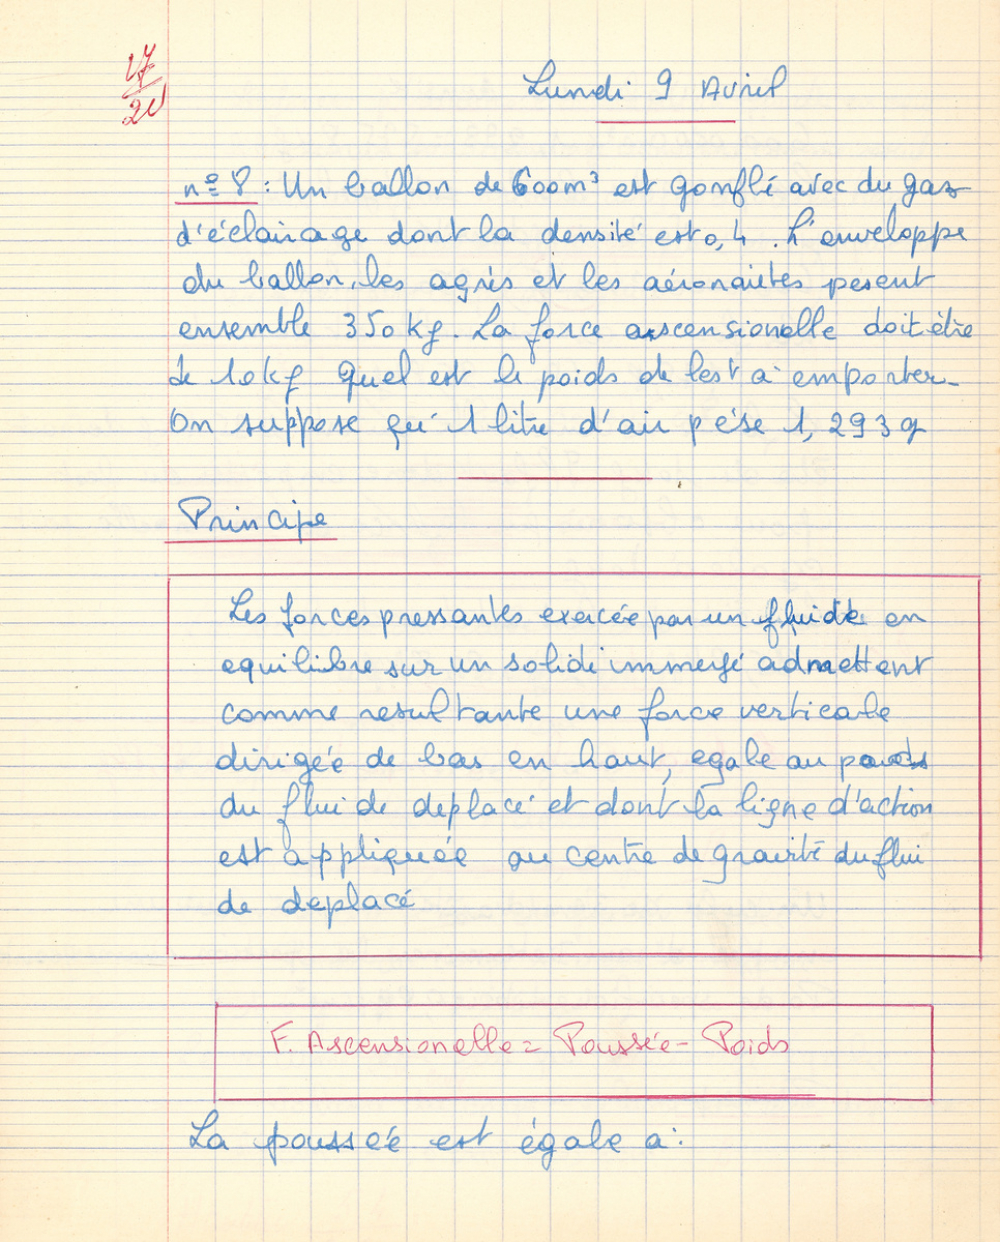 17
20
Lundi 9 Avril
nº 8 : Un ballon de 600m³ est gonflé avec du gaz
d'éclairage dont la densité est 0,4 . L'enveloppe
du ballon, les agrès et les aéronautes pesent
ensemble 350 kg. La force ascensionelle doit être
de 10kg Quel est le poids de lest a emporter.
On suppose qu' 1 litre d'air pése 1,293 g
Principe
Les forces pressantes exercée par un fluide en
equilibre sur un solide immergé admettent
comme resultante une force verticale
dirigée de bas en haut, egale au poids
du fluide deplacé et dont la ligne d'action
est appliquée au centre de gravité du flui
de deplacé
F. Ascensionelle = Poussée - Poids
La poussée est égale a: